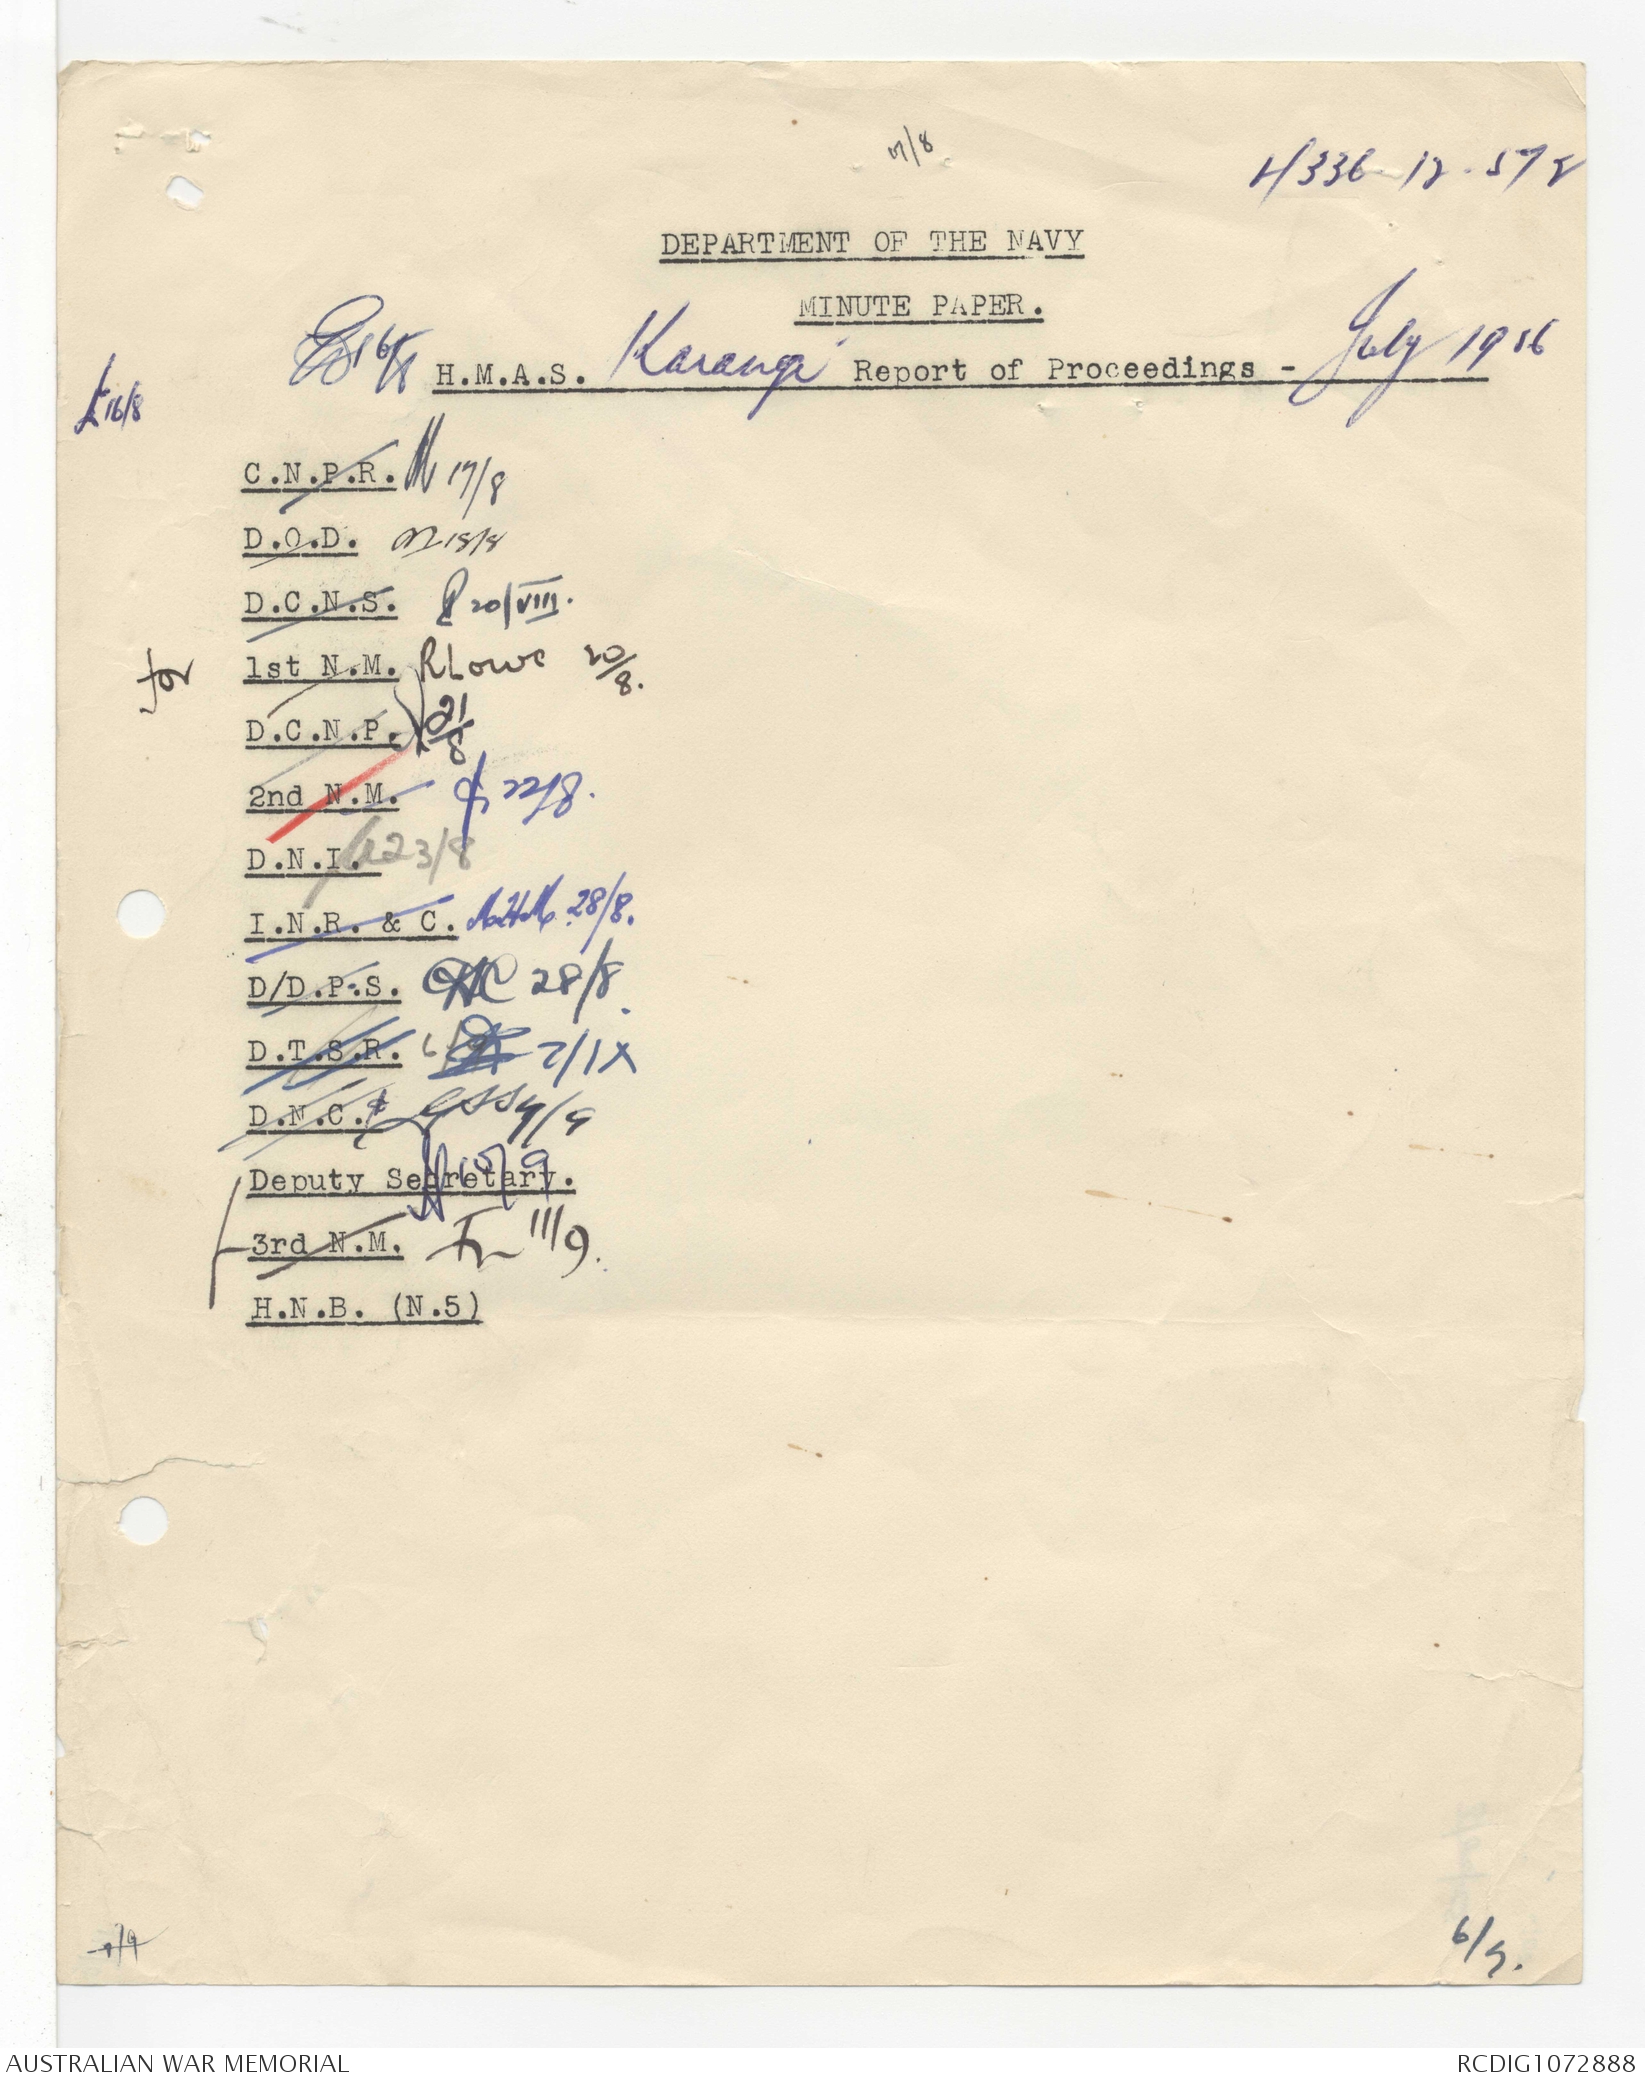 17/8
DEPARTMENT OF THE NAVY
MINUTE PAPER.
16/8 H.M.A.S. Karangi Report of Proceedings - July 1956
16/8
C.N.P.R. 17/8
D.O.D. 18/8
D.C.N.S. 20/VIII.
for 1st N.M. RLowe 20/8.
D.C.N.P. 21/8
2nd N.M. 22/8.
D.N.I. 23/8
I.N.R. & C. 28/8.
D/D.P.S. 28/8.
D.T.S.R. 7/IX
D.N.C. 9/9
Deputy Secretary. 10/9
3rd N.M. 11/9.
H.N.B. (N.5)
6/9.
AUSTRALIAN WAR MEMORIAL
RCDIG1072888